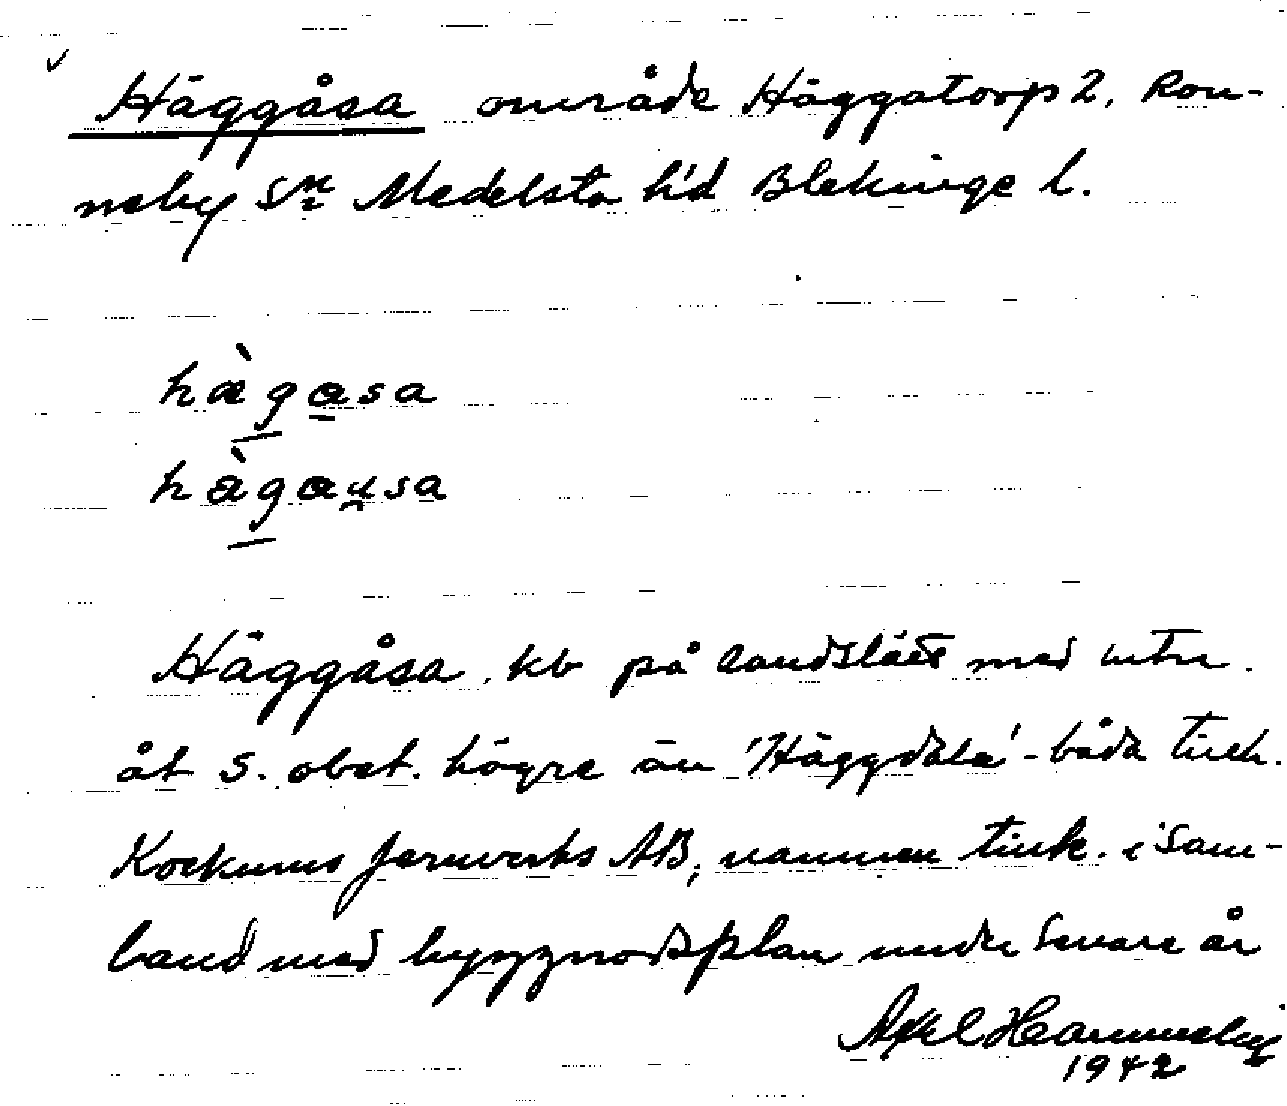 Häggåsa område Häggatorp 2, Ron-
neby sn Medelsta hd Blekinge l.
hæ̀gasa
hàgausa
Häggåsa. kb på landslätt med utm.
åt S. obet. högre än 'Häggdala' - båda tillh.
Kockums Jernverks AB, namnen tillk. i sam-
band med byggnadsplan under senare år
Axel Hammarby
1942